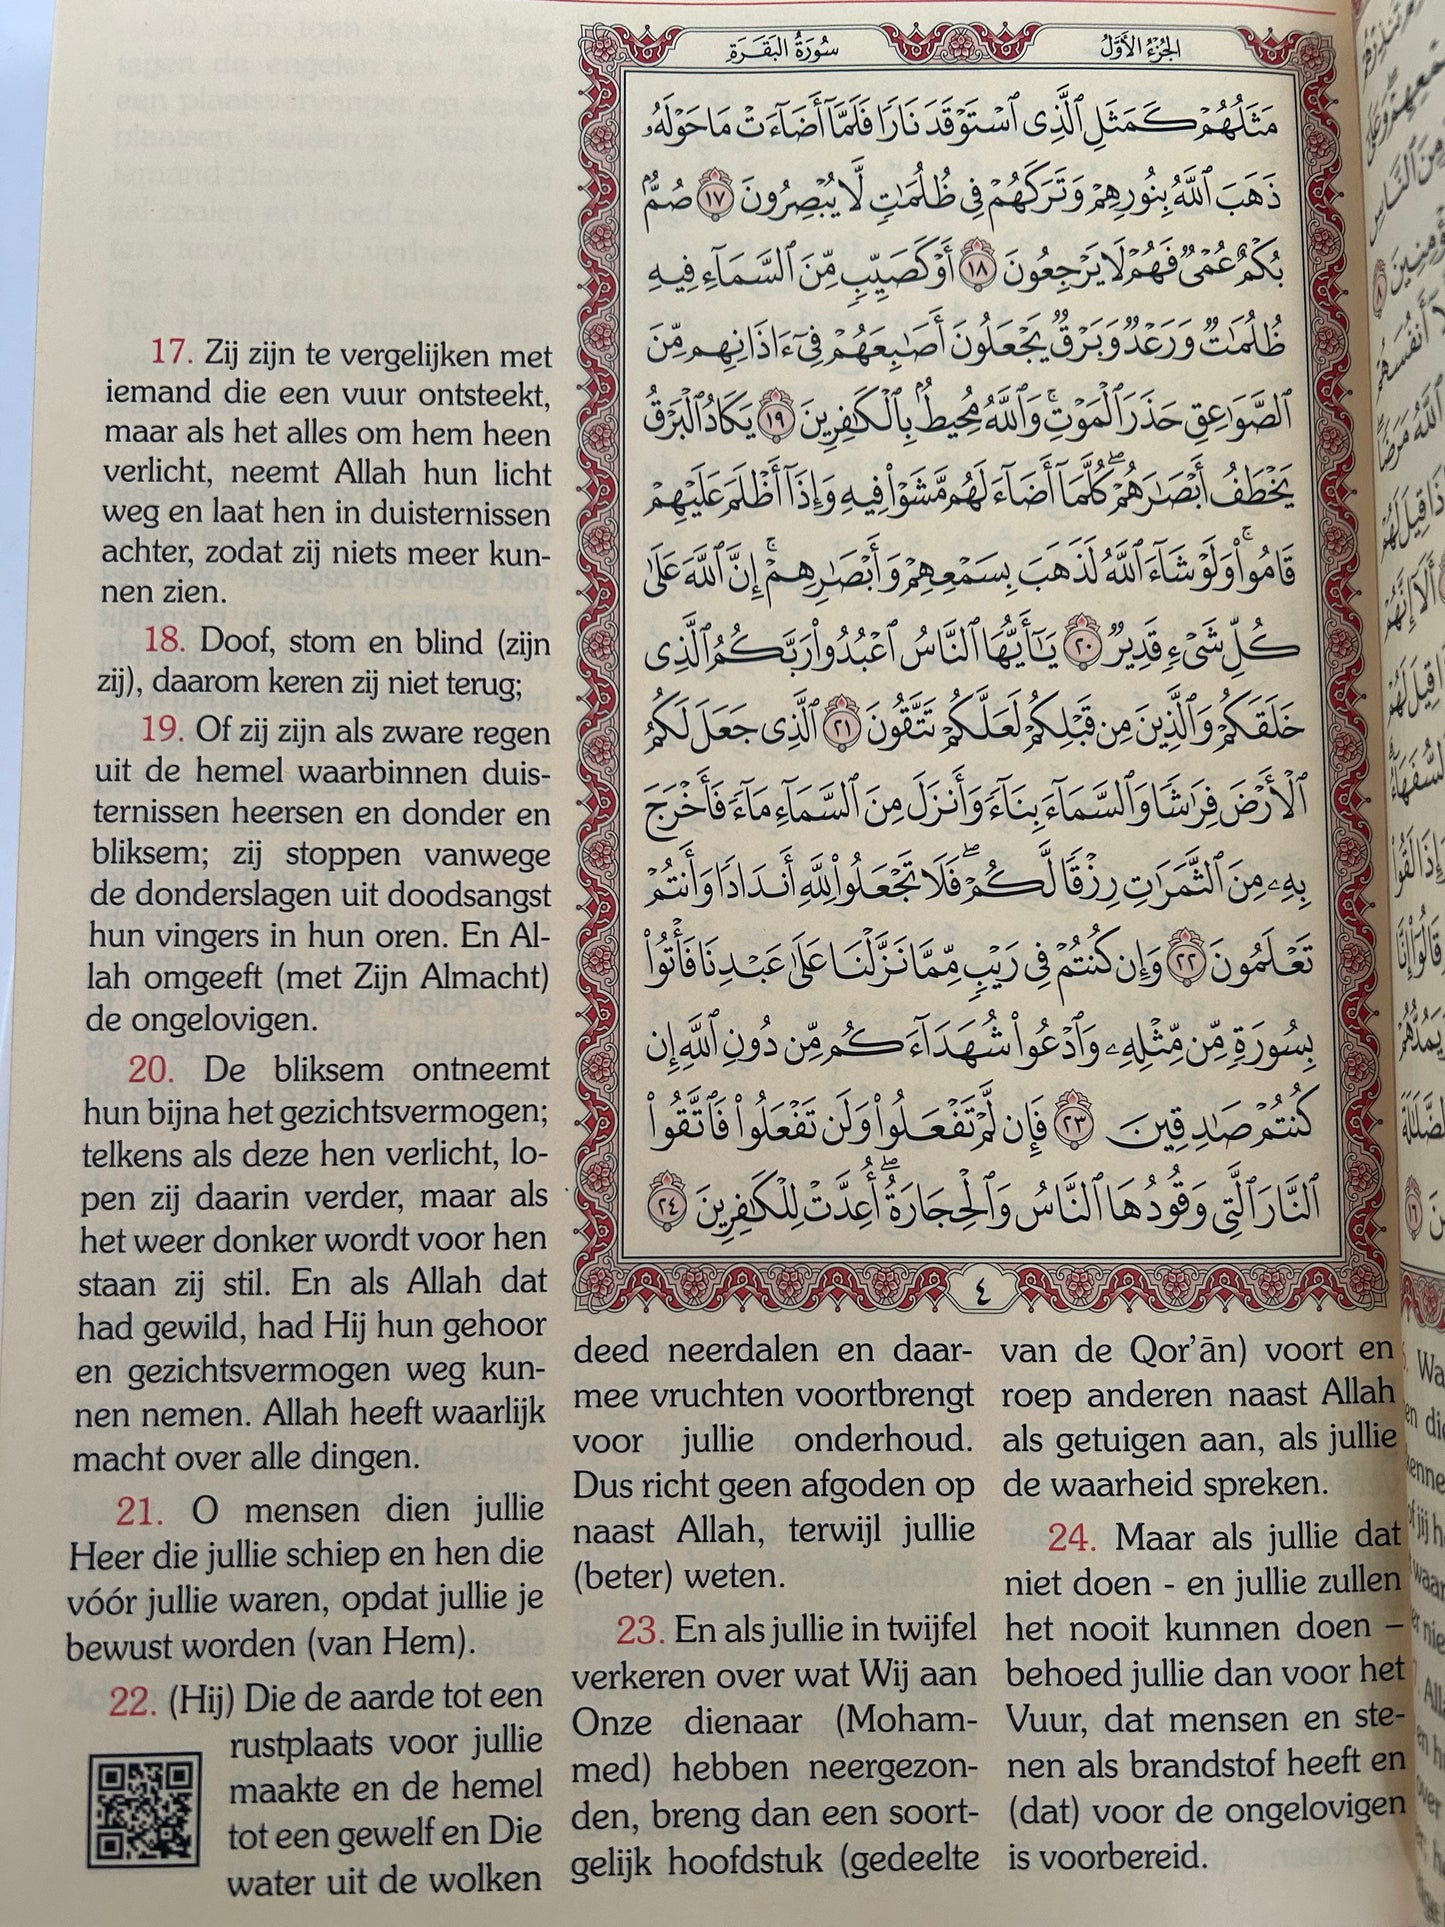 الجُزْءُ الأَوَّلُ
سُورَةُ البَقَرَةِ
مَثَلُهُمْ كَمَثَلِ ٱلَّذِى ٱسْتَوْقَدَ نَارًا فَلَمَّآ أَضَآءَتْ مَا حَوْلَهُۥ
ذَهَبَ ٱللَّهُ بِنُورِهِمْ وَتَرَكَهُمْ فِى ظُلُمَٰتٍ لَّا يُبْصِرُونَ ١٧ صُمٌّۢ
بُكْمٌ عُمْىٌ فَهُمْ لَا يَرْجِعُونَ ١٨ أَوْ كَصَيِّبٍ مِّنَ ٱلسَّمَآءِ فِيهِ
ظُلُمَٰتٌ وَرَعْدٌ وَبَرْقٌ يَجْعَلُونَ أَصَٰبِعَهُمْ فِىٓ ءَاذَانِهِم مِّنَ
ٱلصَّوَٰعِقِ حَذَرَ ٱلْمَوْتِ ۚ وَٱللَّهُ مُحِيطٌۢ بِٱلْكَٰفِرِينَ ١٩ يَكَادُ ٱلْبَرْقُ
يَخْطَفُ أَبْصَٰرَهُمْ ۖ كُلَّمَآ أَضَآءَ لَهُم مَّشَوْا۟ فِيهِ وَإِذَآ أَظْلَمَ عَلَيْهِمْ
قَامُوا۟ ۚ وَلَوْ شَآءَ ٱللَّهُ لَذَهَبَ بِسَمْعِهِمْ وَأَبْصَٰرِهِمْ ۚ إِنَّ ٱللَّهَ عَلَىٰ
كُلِّ شَىْءٍ قَدِيرٌ ٢٠ يَٰٓأَيُّهَا ٱلنَّاسُ ٱعْبُدُوا۟ رَبَّكُمُ ٱلَّذِى
خَلَقَكُمْ وَٱلَّذِينَ مِن قَبْلِكُمْ لَعَلَّكُمْ تَتَّقُونَ ٢١ ٱلَّذِى جَعَلَ لَكُمُ
ٱلْأَرْضَ فِرَٰشًا وَٱلسَّمَآءَ بِنَآءً وَأَنزَلَ مِنَ ٱلسَّمَآءِ مَآءً فَأَخْرَجَ
بِهِۦ مِنَ ٱلثَّمَرَٰتِ رِزْقًا لَّكُمْ ۖ فَلَا تَجْعَلُوا۟ لِلَّهِ أَندَادًا وَأَنتُمْ
تَعْلَمُونَ ٢٢ وَإِن كُنتُمْ فِى رَيْبٍ مِّمَّا نَزَّلْنَا عَلَىٰ عَبْدِنَا فَأْتُوا۟
بِسُورَةٍ مِّن مِّثْلِهِۦ وَٱدْعُوا۟ شُهَدَآءَكُم مِّن دُونِ ٱللَّهِ إِن
كُنتُمْ صَٰدِقِينَ ٢٣ فَإِن لَّمْ تَفْعَلُوا۟ وَلَن تَفْعَلُوا۟ فَٱتَّقُوا۟
ٱلنَّارَ ٱلَّتِى وَقُودُهَا ٱلنَّاسُ وَٱلْحِجَارَةُ ۖ أُعِدَّتْ لِلْكَٰفِرِينَ ٢٤
٤
17. Zij zijn te vergelijken met
iemand die een vuur ontsteekt,
maar als het alles om hem heen
verlicht, neemt Allah hun licht
weg en laat hen in duisternissen
achter, zodat zij niets meer kun-
nen zien.
18. Doof, stom en blind (zijn
zij), daarom keren zij niet terug;
19. Of zij zijn als zware regen
uit de hemel waarbinnen duis-
ternissen heersen en donder en
bliksem; zij stoppen vanwege
de donderslagen uit doodsangst
hun vingers in hun oren. En Al-
lah omgeeft (met Zijn Almacht)
de ongelovigen.
20. De bliksem ontneemt
hun bijna het gezichtsvermogen;
telkens als deze hen verlicht, lo-
pen zij daarin verder, maar als
het weer donker wordt voor hen
staan zij stil. En als Allah dat
had gewild, had Hij hun gehoor
en gezichtsvermogen weg kun-
nen nemen. Allah heeft waarlijk
macht over alle dingen.
21. O mensen dien jullie
Heer die jullie schiep en hen die
vóór jullie waren, opdat jullie je
bewust worden (van Hem).
22. (Hij) Die de aarde tot een
rustplaats voor jullie
maakte en de hemel
tot een gewelf en Die
water uit de wolken
deed neerdalen en daar-
mee vruchten voortbrengt
voor jullie onderhoud.
Dus richt geen afgoden op
naast Allah, terwijl jullie
(beter) weten.
23. En als jullie in twijfel
verkeren over wat Wij aan
Onze dienaar (Moham-
med) hebben neergezon-
den, breng dan een soort-
gelijk hoofdstuk (gedeelte
van de Qor’ān) voort en
roep anderen naast Allah
als getuigen aan, als jullie
de waarheid spreken.
24. Maar als jullie dat
niet doen - en jullie zullen
het nooit kunnen doen –
behoed jullie dan voor het
Vuur, dat mensen en ste-
nen als brandstof heeft en
(dat) voor de ongelovigen
is voorbereid.